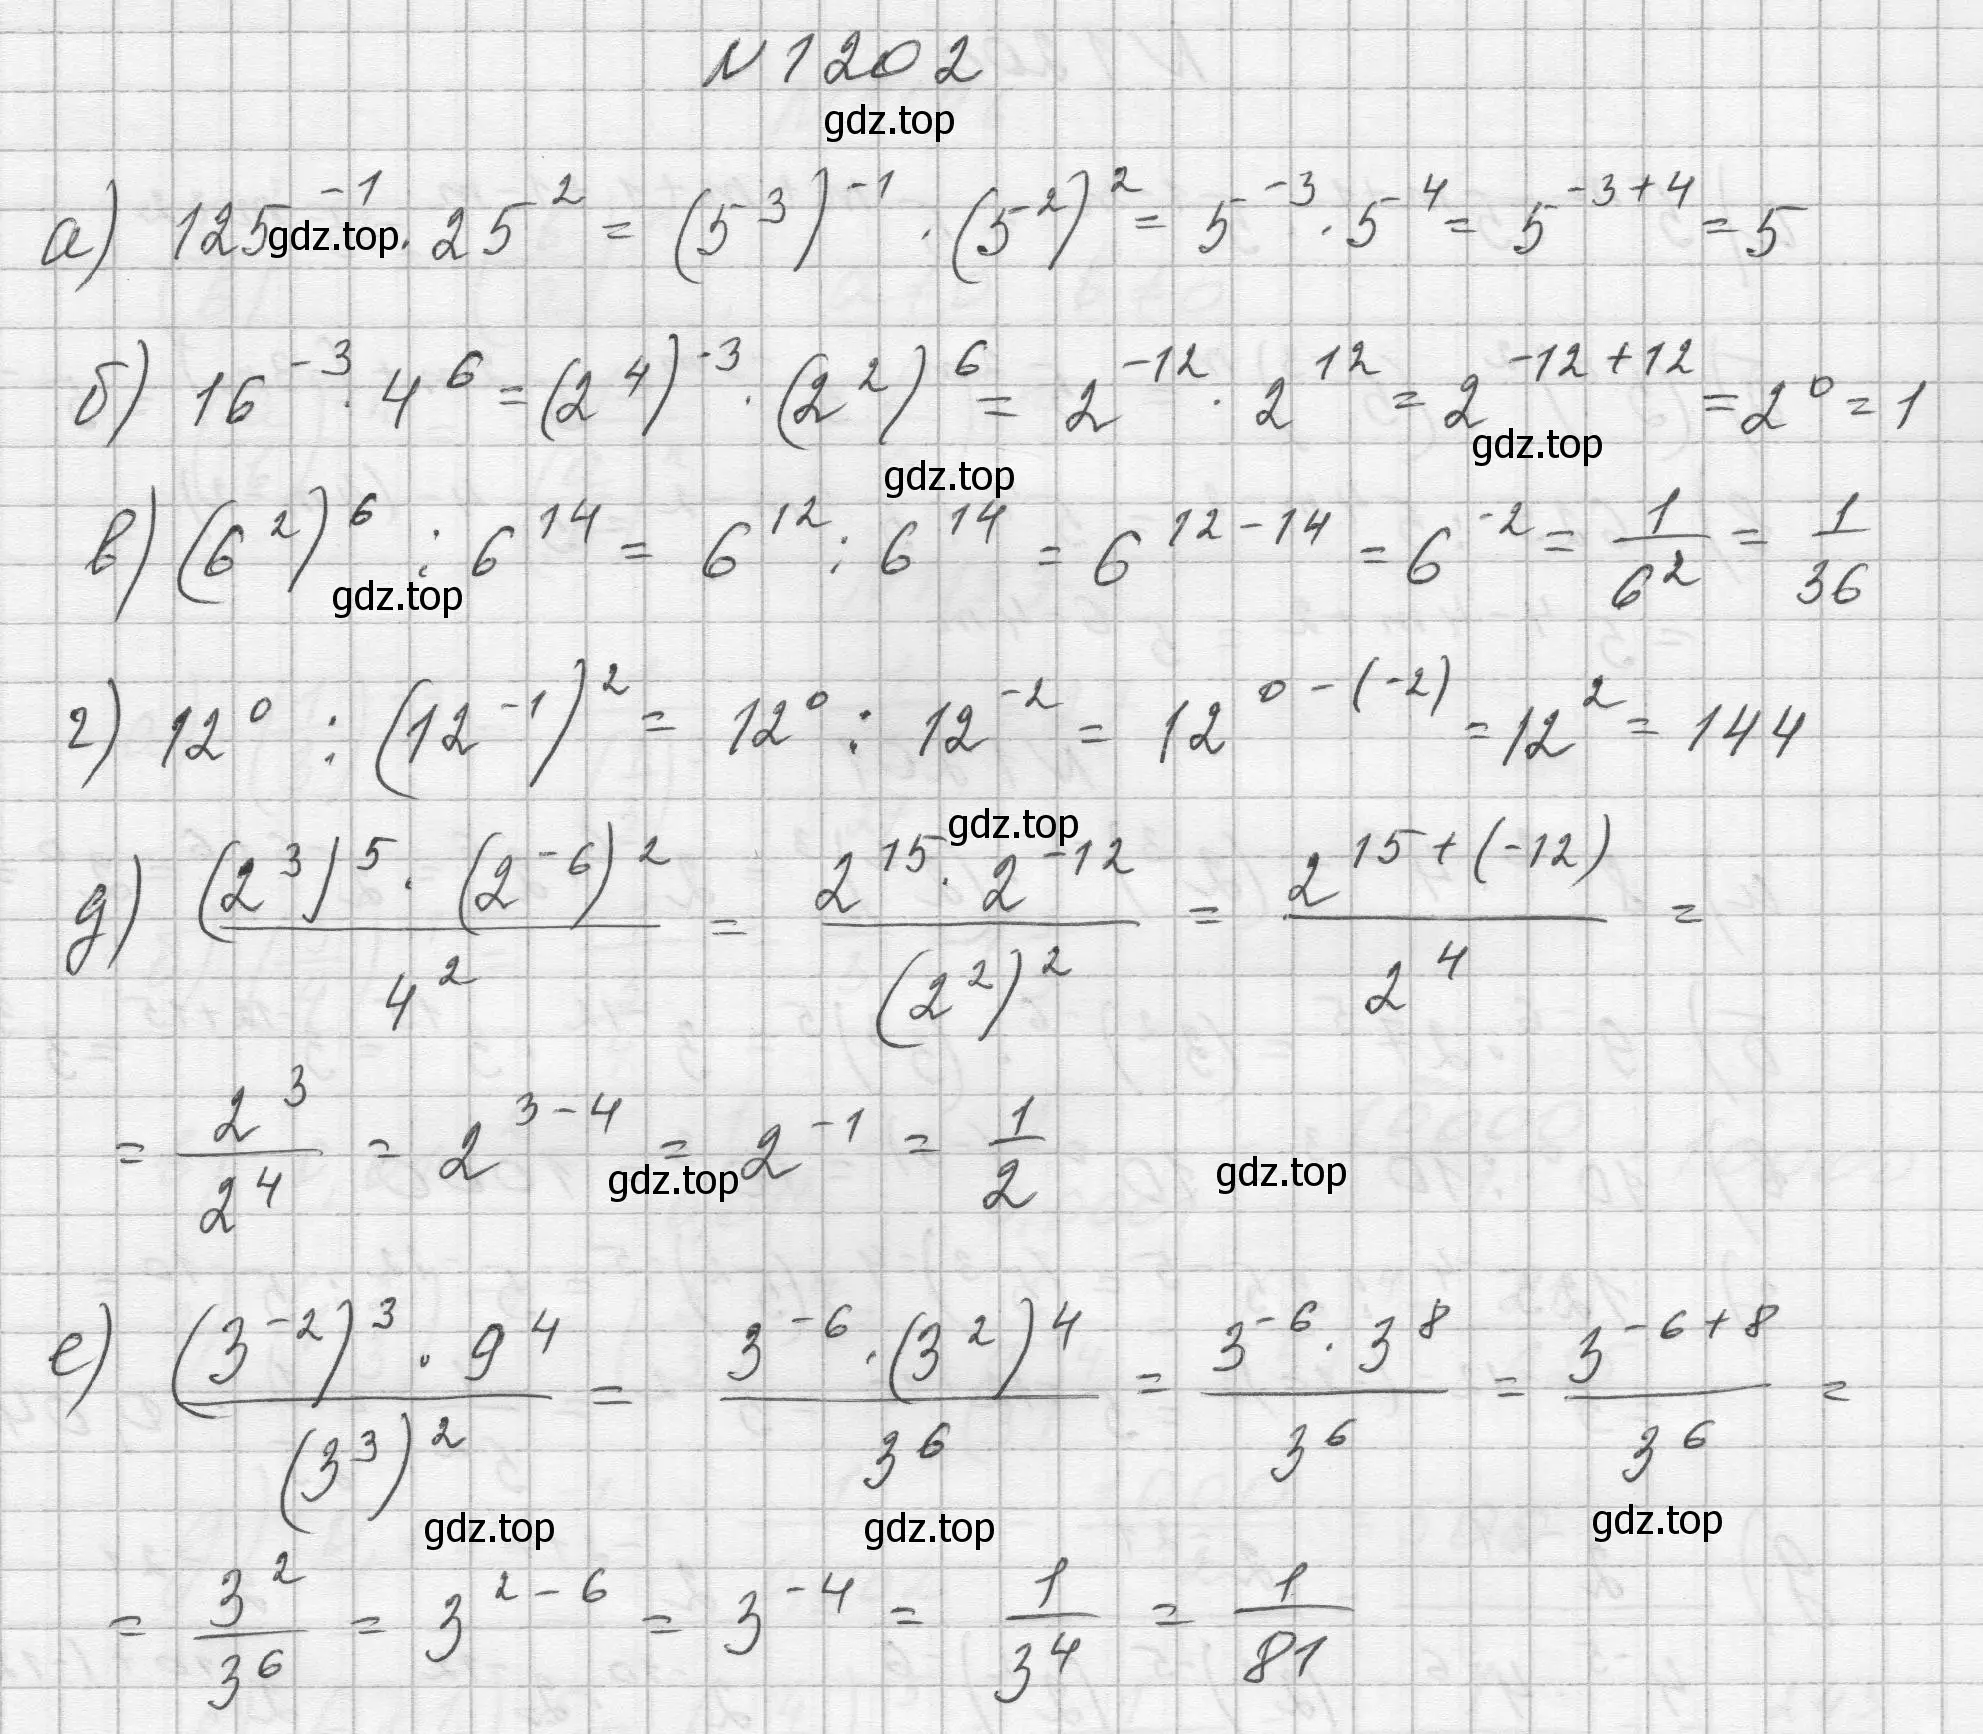 № 1202
gdz.top
а) 125⁻¹ · 25² = (5³)⁻¹ · (5²)² = 5⁻³ · 5⁴ = 5⁻³⁺⁴ = 5
gdz.top
б) 16⁻³ · 4⁶ = (2⁴)⁻³ · (2²)⁶ = 2⁻¹² · 2¹² = 2⁻¹²⁺¹² = 2⁰ = 1
gdz.top gdz.top
в) (6²)⁶ : 6¹⁴ = 6¹² : 6¹⁴ = 6¹²⁻¹⁴ = 6⁻² = 1/6² = 1/36
gdz.top
г) 12⁰ : (12⁻¹)² = 12⁰ : 12⁻² = 12⁰⁻⁽⁻²⁾ = 12² = 144
gdz.top
д) ((2³)⁵ · (2⁻⁶)²)/4² = (2¹⁵ · 2⁻¹²)/(2²)² = 2¹⁵⁺⁽⁻¹²⁾/2⁴ =
= 2³/2⁴ = 2³⁻⁴ = 2⁻¹ = 1/2
gdz.top gdz.top
е) ((3⁻²)³ · 9⁴)/(3³)² = (3⁻⁶ · (3²)⁴)/3⁶ = (3⁻⁶ · 3⁸)/3⁶ = 3⁻⁶⁺⁸/3⁶ =
gdz.top gdz.top gdz.top
= 3²/3⁶ = 3²⁻⁶ = 3⁻⁴ = 1/3⁴ = 1/81